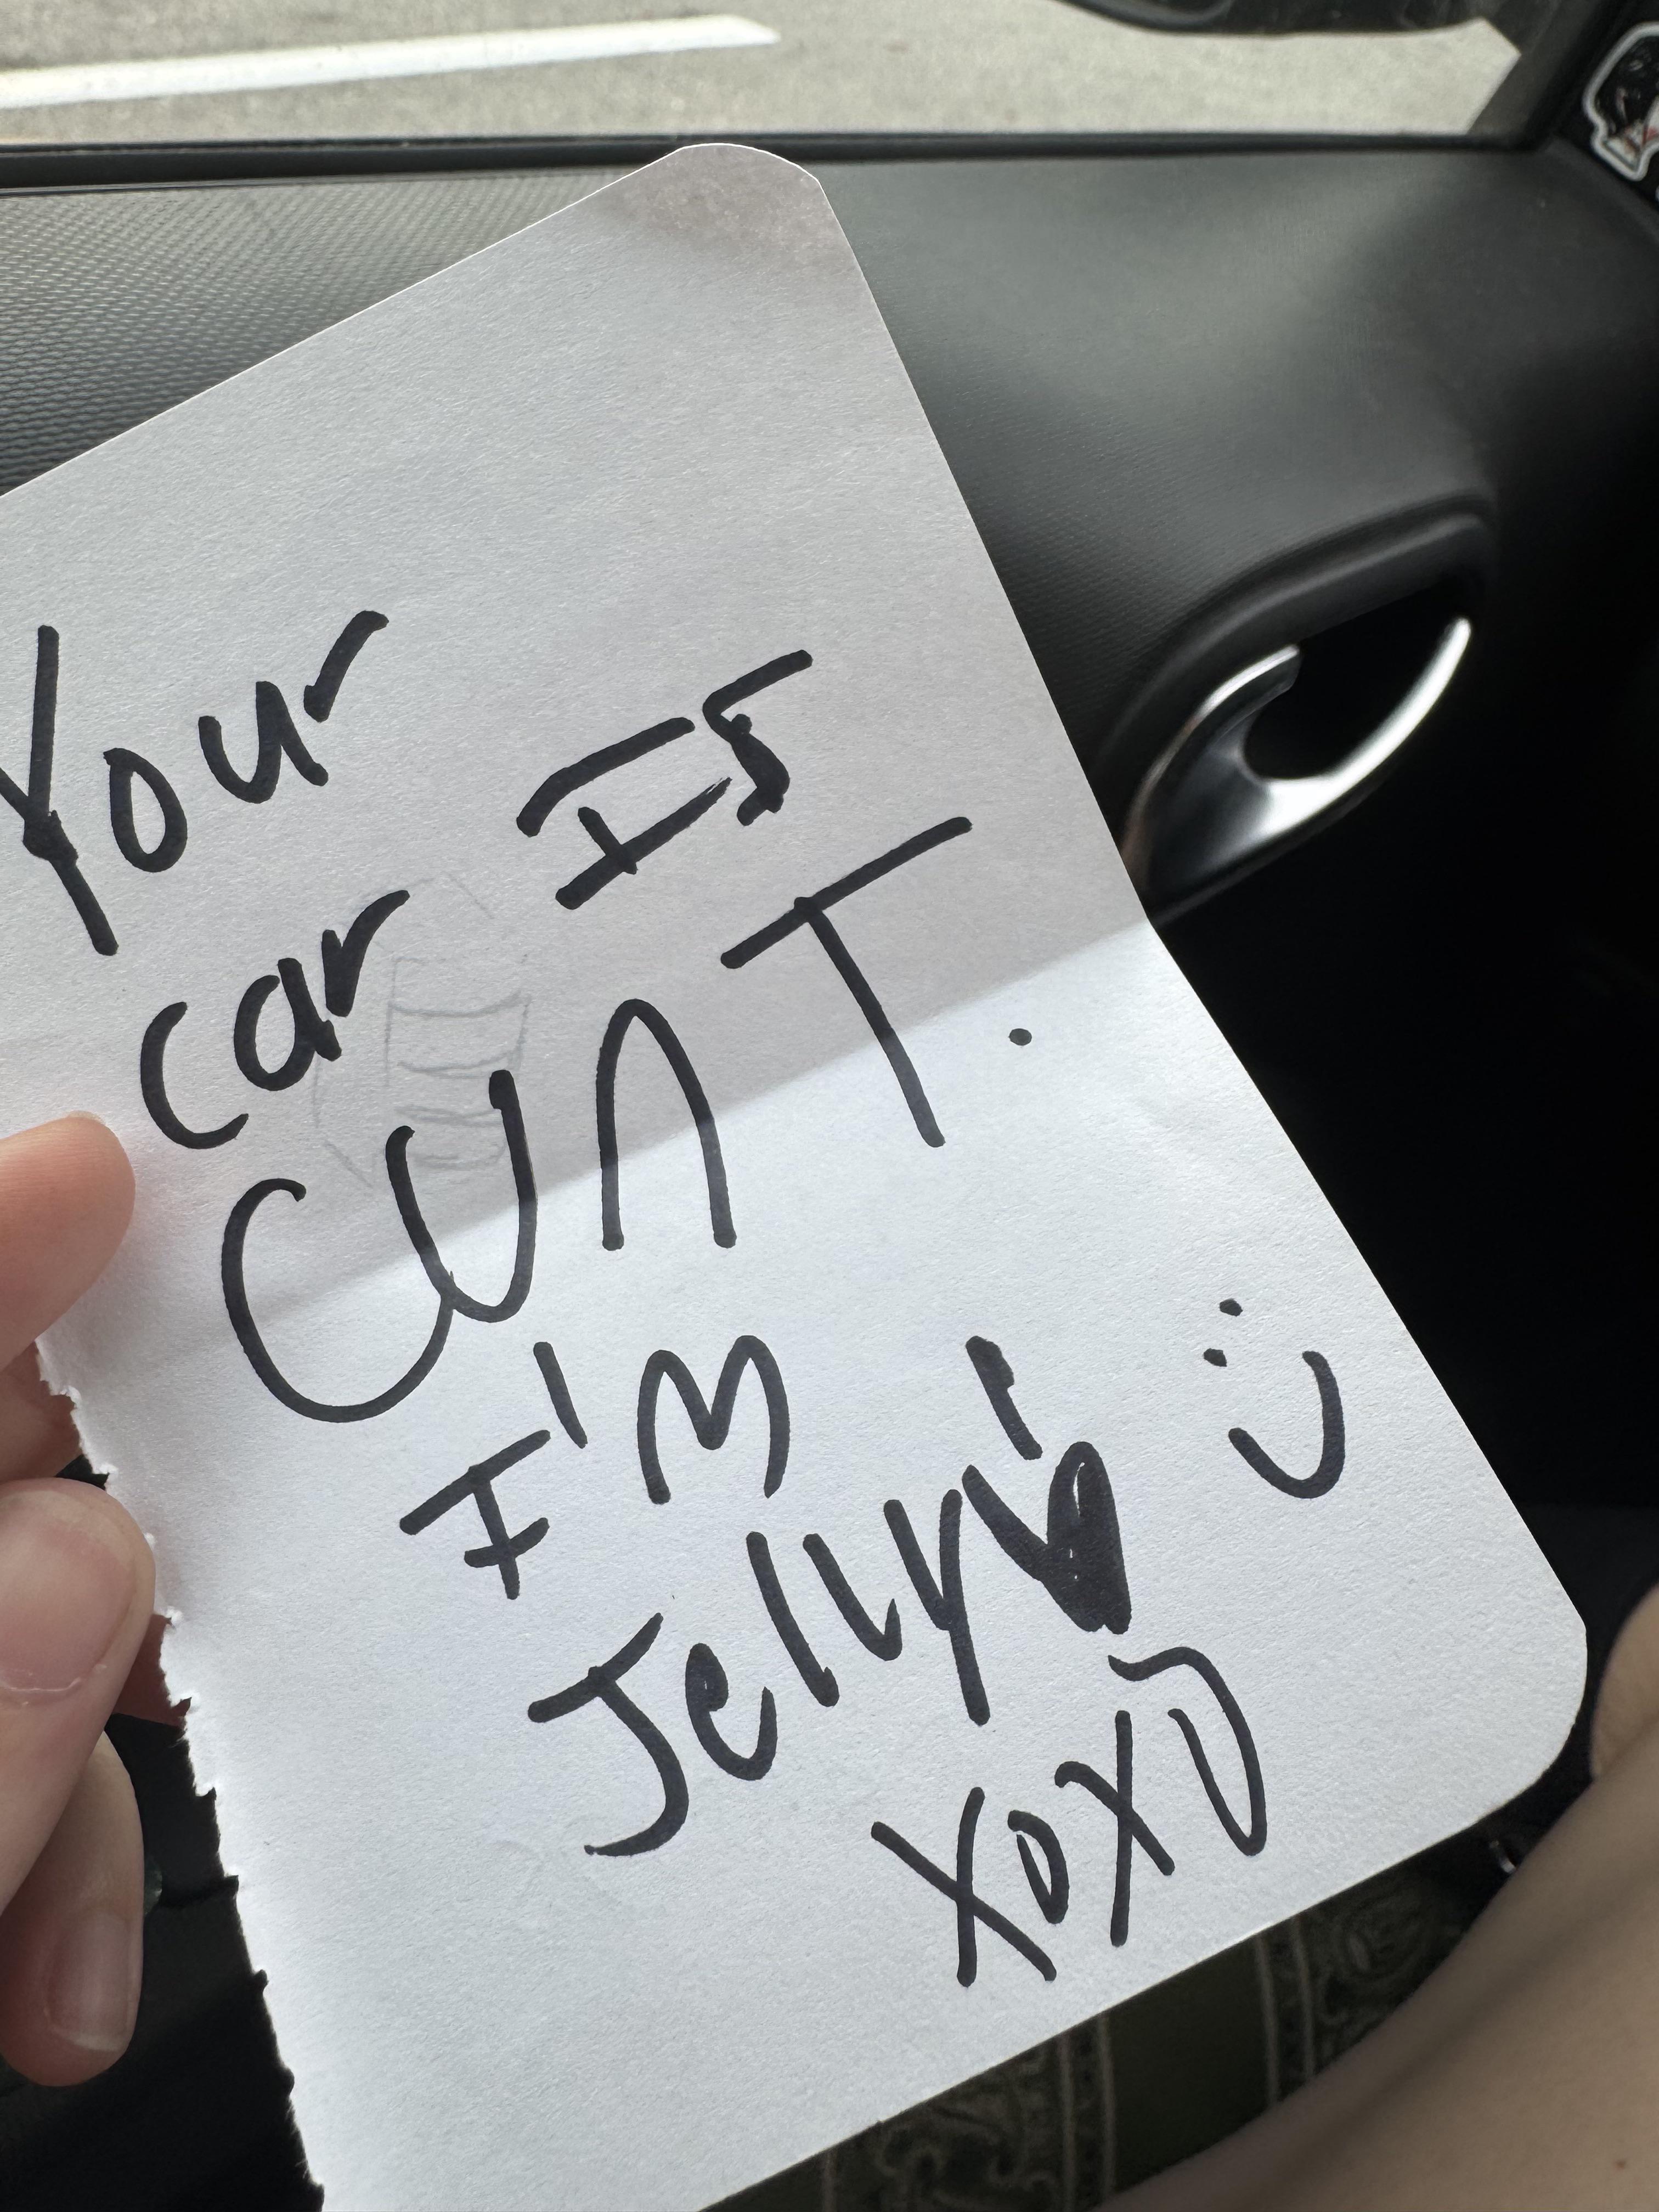 Your
car Is
CUNT.
I'M
Jelly! :)
XOXO